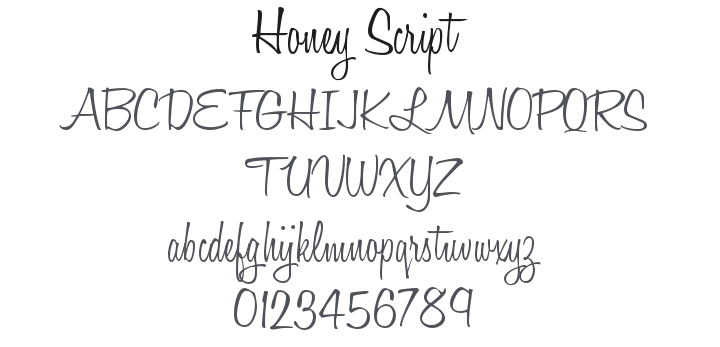 Honey Script
ABCDEFGHIJKLMNOPQRS
TUVWXYZ
abcdefghijklmnopqrstuvwxyz
0123456789